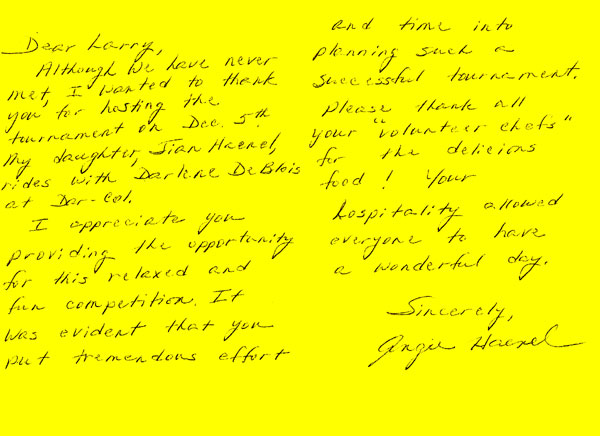 Dear Larry,
Although we have never
met, I wanted to thank
you for hosting the
tournament on Dec. 5th.
My daughter, Jian Haenel,
rides with Darlene DeBlois
at Dar-Col.
I appreciate you
providing the opportunity
for this relaxed and
fun competition. It
was evident that you
put tremendous effort
and time into
planning such a
successful tournament.
Please thank all
your "volunteer chefs"
for the delicious
food! Your
hospitality allowed
everyone to have
a wonderful day.
Sincerely,
Angie Haenel